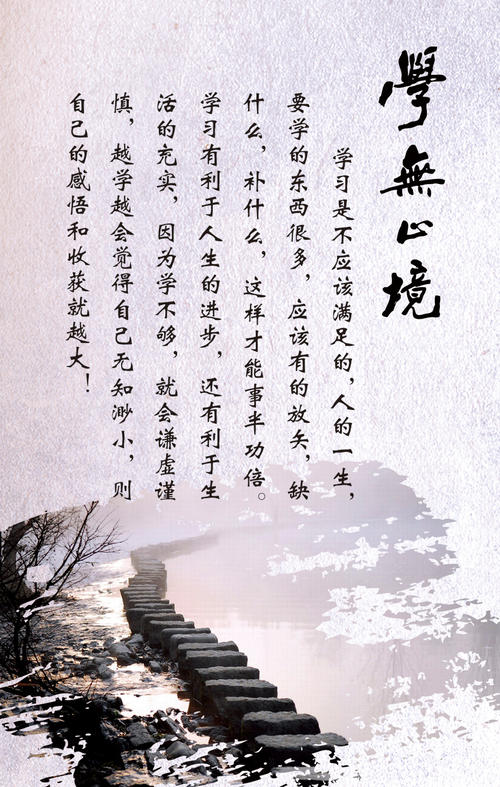 學無止境
学习是不应该满足的，人的一生，
要学的东西很多，应该有的放矢，缺
什么，补什么，这样才能事半功倍。
学习有利于人生的进步，还有利于生
活的充实，因为学不够，就会谦虚谨
慎，越学越会觉得自己无知渺小，则
自己的感悟和收获就越大！